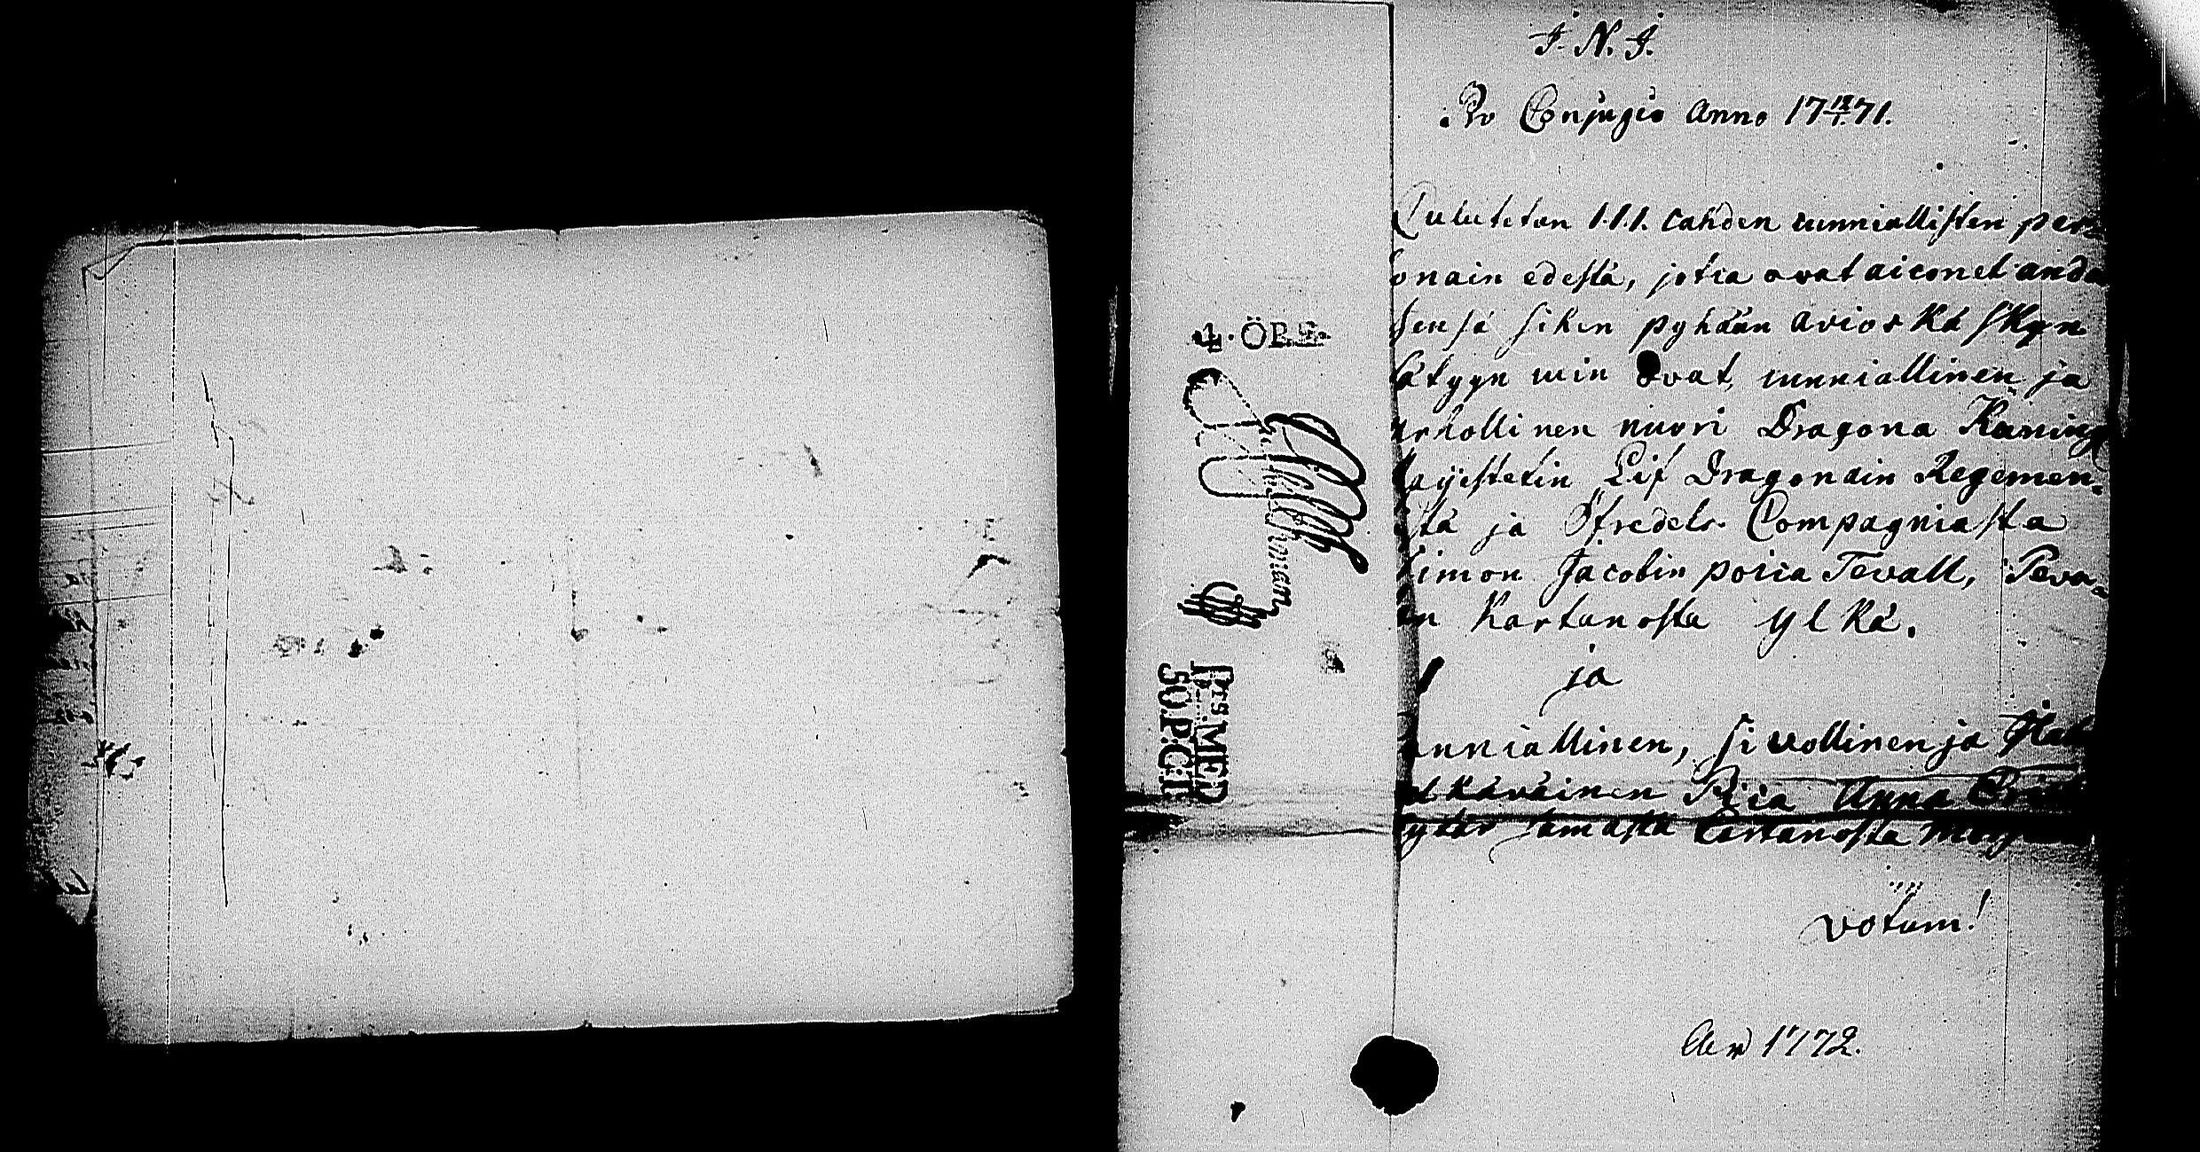 J. N. J.
Pro Conjugio Anno 17 12/1. 71.
Culutetan 1.1.1. cahden cunniallisten per-
onain edestä, jotca ovat aiconet anda
hensä sihen pyhään avios käskyn
sätyyn nin ovat, cunniallinen ja
urhollinen nuori Dragona Kuning
Lif Dragonain Regemen-
stä ja Öfredels Compagniasta
Simon Jacobin poica Tevall, Teva-
in Kartanosta ylkä.
ja
unniallinen, sivollinen ja
käväinen Piica Anna
ytär tämästä Cartanosta
votum!
1772.
4. ÖRS.
Prs. MED
50. P:C:T